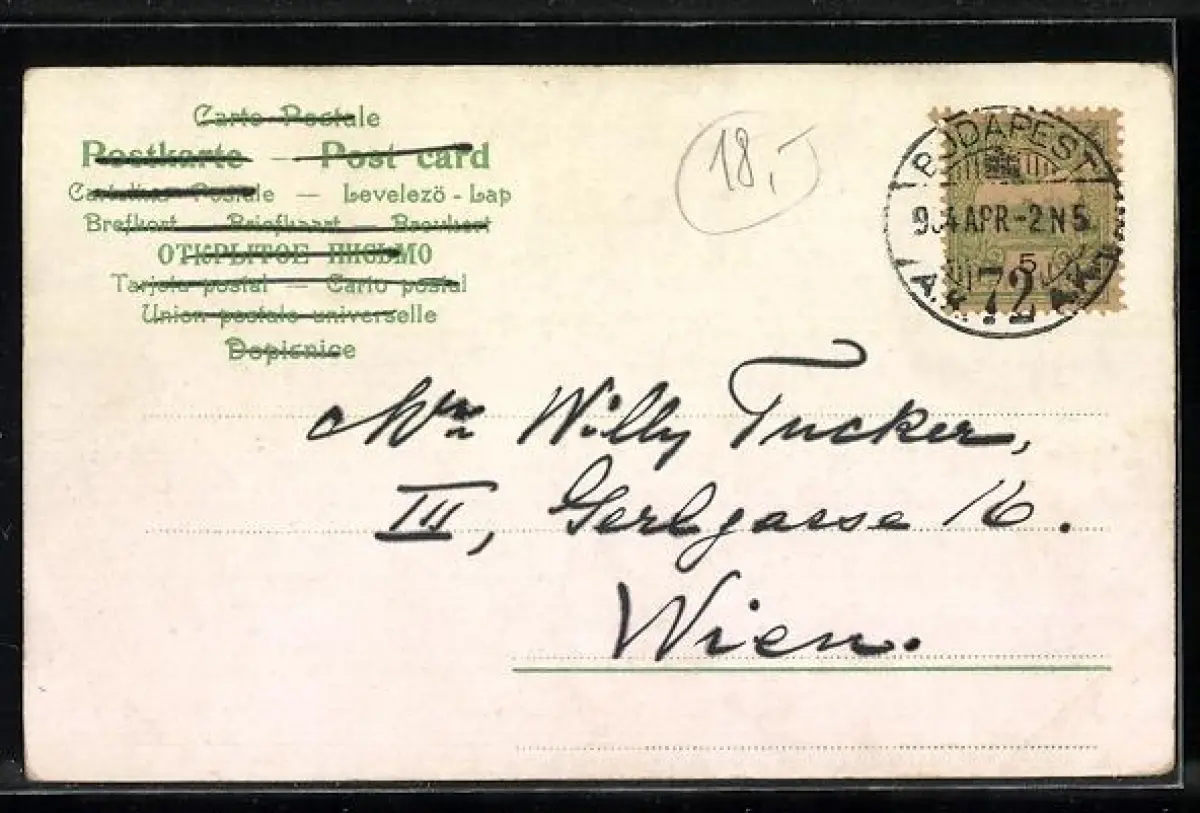 Carte Postale
Postkarte — Post card
Cartolina Postale — Levelezö - Lap
Brefkort — Briefkaart — Brevkort
ОТКРЫТОЕ ПИСЬМО
Tarjeta postal — Carto postal
Union postale universelle
Dopisnice
18,-
BUDAPEST
904 APR-2 N5
72
5
Mr Willy Tucker,
III, Gerlgasse 16.
Wien.